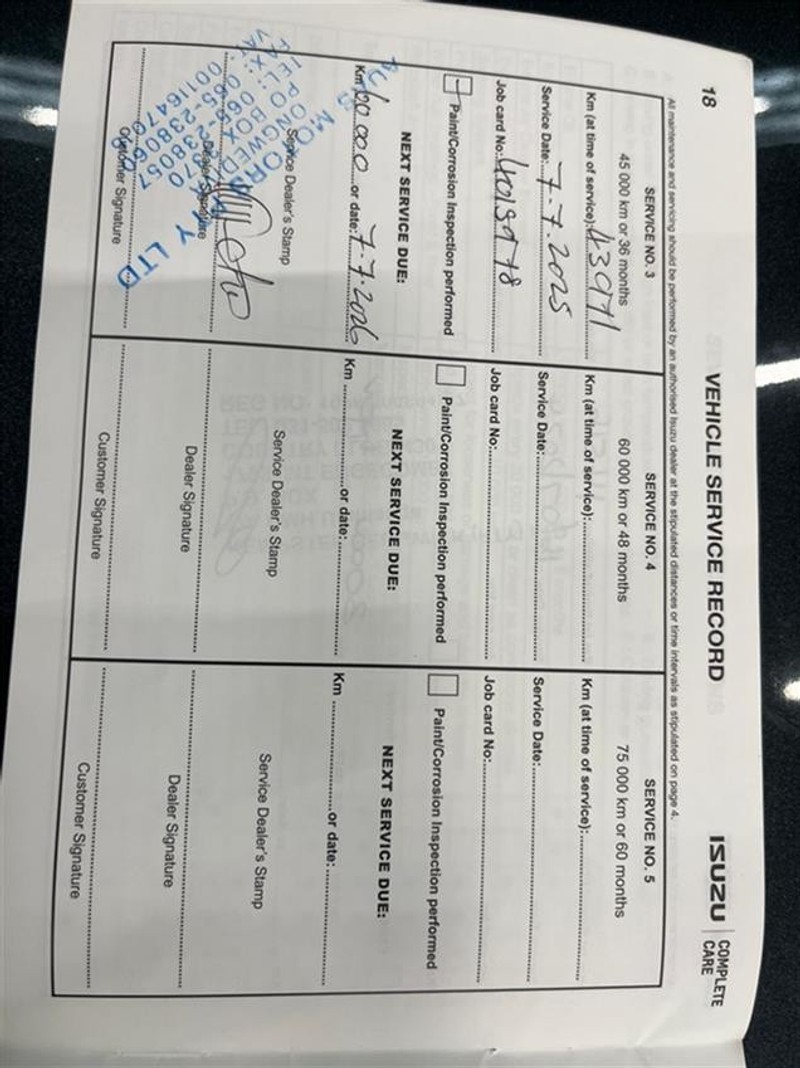 18
VEHICLE SERVICE RECORD
ISUZU COMPLETE CARE
All maintenance and servicing should be performed by an authorised Isuzu dealer at the stipulated distances or time intervals as stipulated on page 4.
SERVICE NO. 3
45 000 km or 36 months
Km (at time of service): 43971
Service Date: 7-7-2025
Job card No:
Paint/Corrosion Inspection performed
NEXT SERVICE DUE:
Km 60 000 or date: 7-7-2026
Service Dealer's Stamp
Dealer Signature
Customer Signature
PO BOX
LTD
SERVICE NO. 4
60 000 km or 48 months
Km (at time of service):
Service Date:
Job card No:
Paint/Corrosion Inspection performed
NEXT SERVICE DUE:
Km or date:
Service Dealer's Stamp
Dealer Signature
Customer Signature
SERVICE NO. 5
75 000 km or 60 months
Km (at time of service):
Service Date:
Job card No:
Paint/Corrosion Inspection performed
NEXT SERVICE DUE:
Km or date:
Service Dealer's Stamp
Dealer Signature
Customer Signature